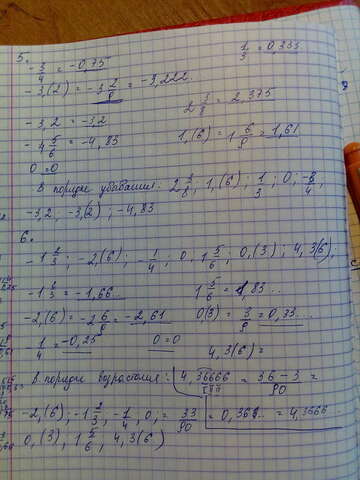 5.
-3/4 = -0,75
1/3 = 0,333
-3,(2) = -3 2/9 = -3,222
2 3/8 = 2,375
-3,2 = -3,2
1,(6) = 1 6/9 = 1,61
-4 5/6 = -4,83
0 = 0
В порядке убывания: 2 3/8; 1,(6); 1/3; 0;
-3,2; -3,(2); -4,83
6.
-1 2/3; -2,(6); -1/4; 0; 1 5/6; 0,(3); 4,3(6),
= -1,66...
1 5/6 = 1,83...
-2,(6) = -2 6/9 = -2,61
0(3) = 3/9 = 0,33...
-1/4 = -0,25
0 = 0
4,3(6) =
В порядке возрастания:
4,36666 = 36 - 3 / 90 =
-2,(6); -1 2/3, -1/4, 0,
= 33/90 = 0,366... = 4,3666...
0,(3), 1 5/6, 4,3(6)